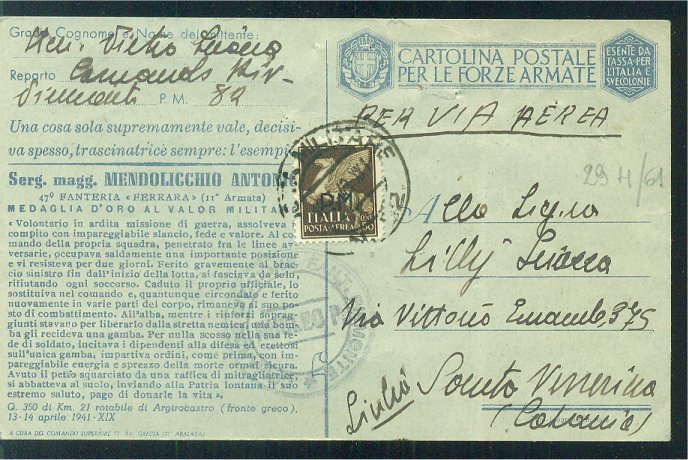 Grado, Cognome e Nome del mittente:
Ten. Pietro
Reparto Comando Div.
Piemonte P. M. 82
Una cosa sola supremamente vale, decisi-
va spesso, trascinatrice sempre: l'esempio
Serg. magg. MENDOLICCHIO ANTONIO
47° FANTERIA «FERRARA» (11ª Armata)
MEDAGLIA D'ORO AL VALOR MILITARE
«Volontario in ardita missione di guerra, assolveva il
compito con impareggiabile slancio, fede e valore. Al co-
mando della propria squadra, penetrato fra le linee av-
versarie, occupava saldamente una importante posizione
e vi resisteva per due giorni. Ferito gravemente al brac-
cio sinistro fin dall'inizio della lotta, si fasciava da solo,
rifiutando ogni soccorso. Caduto il proprio ufficiale, lo
sostituiva nel comando e, quantunque circondato e ferito
nuovamente in varie parti del corpo, rimaneva al suo po-
sto di combattimento. All'alba, mentre i rinforzi soprag-
giunti stavano per liberarlo dalla stretta nemica, una bom-
ba gli recideva una gamba. Per nulla scosso nella sua fe-
de di soldato, incitava i dipendenti alla difesa ed erettosi
sull'unica gamba, impartiva ordini, come prima, con im-
pareggiabile energia e sprezzo della morte ormai sicura.
Avuto il petto squarciato da una raffica di mitragliatrice,
si abbatteva al suolo, inviando alla Patria lontana il suo
estremo saluto, pago di donarle la vita».
Q. 350 di Km. 21 rotabile di Argirocastro (fronte greco),
13-14 aprile 1941-XIX
A CURA DEL COMANDO SUPERIORE FF. AA. GRECIA (11ª ARMATA)
CARTOLINA POSTALE
PER LE FORZE ARMATE
ESENTE DA
TASSA·PER
L'ITALIA E
SVE COLONIE
PER VIA AEREA
MILITARE
PM
ITALIA
POSTA AEREA
50
29 H/61
Alla Sig.ra
Lilly
Via Vittorio Emanuele, 375
Santa Venerina
(Catania)